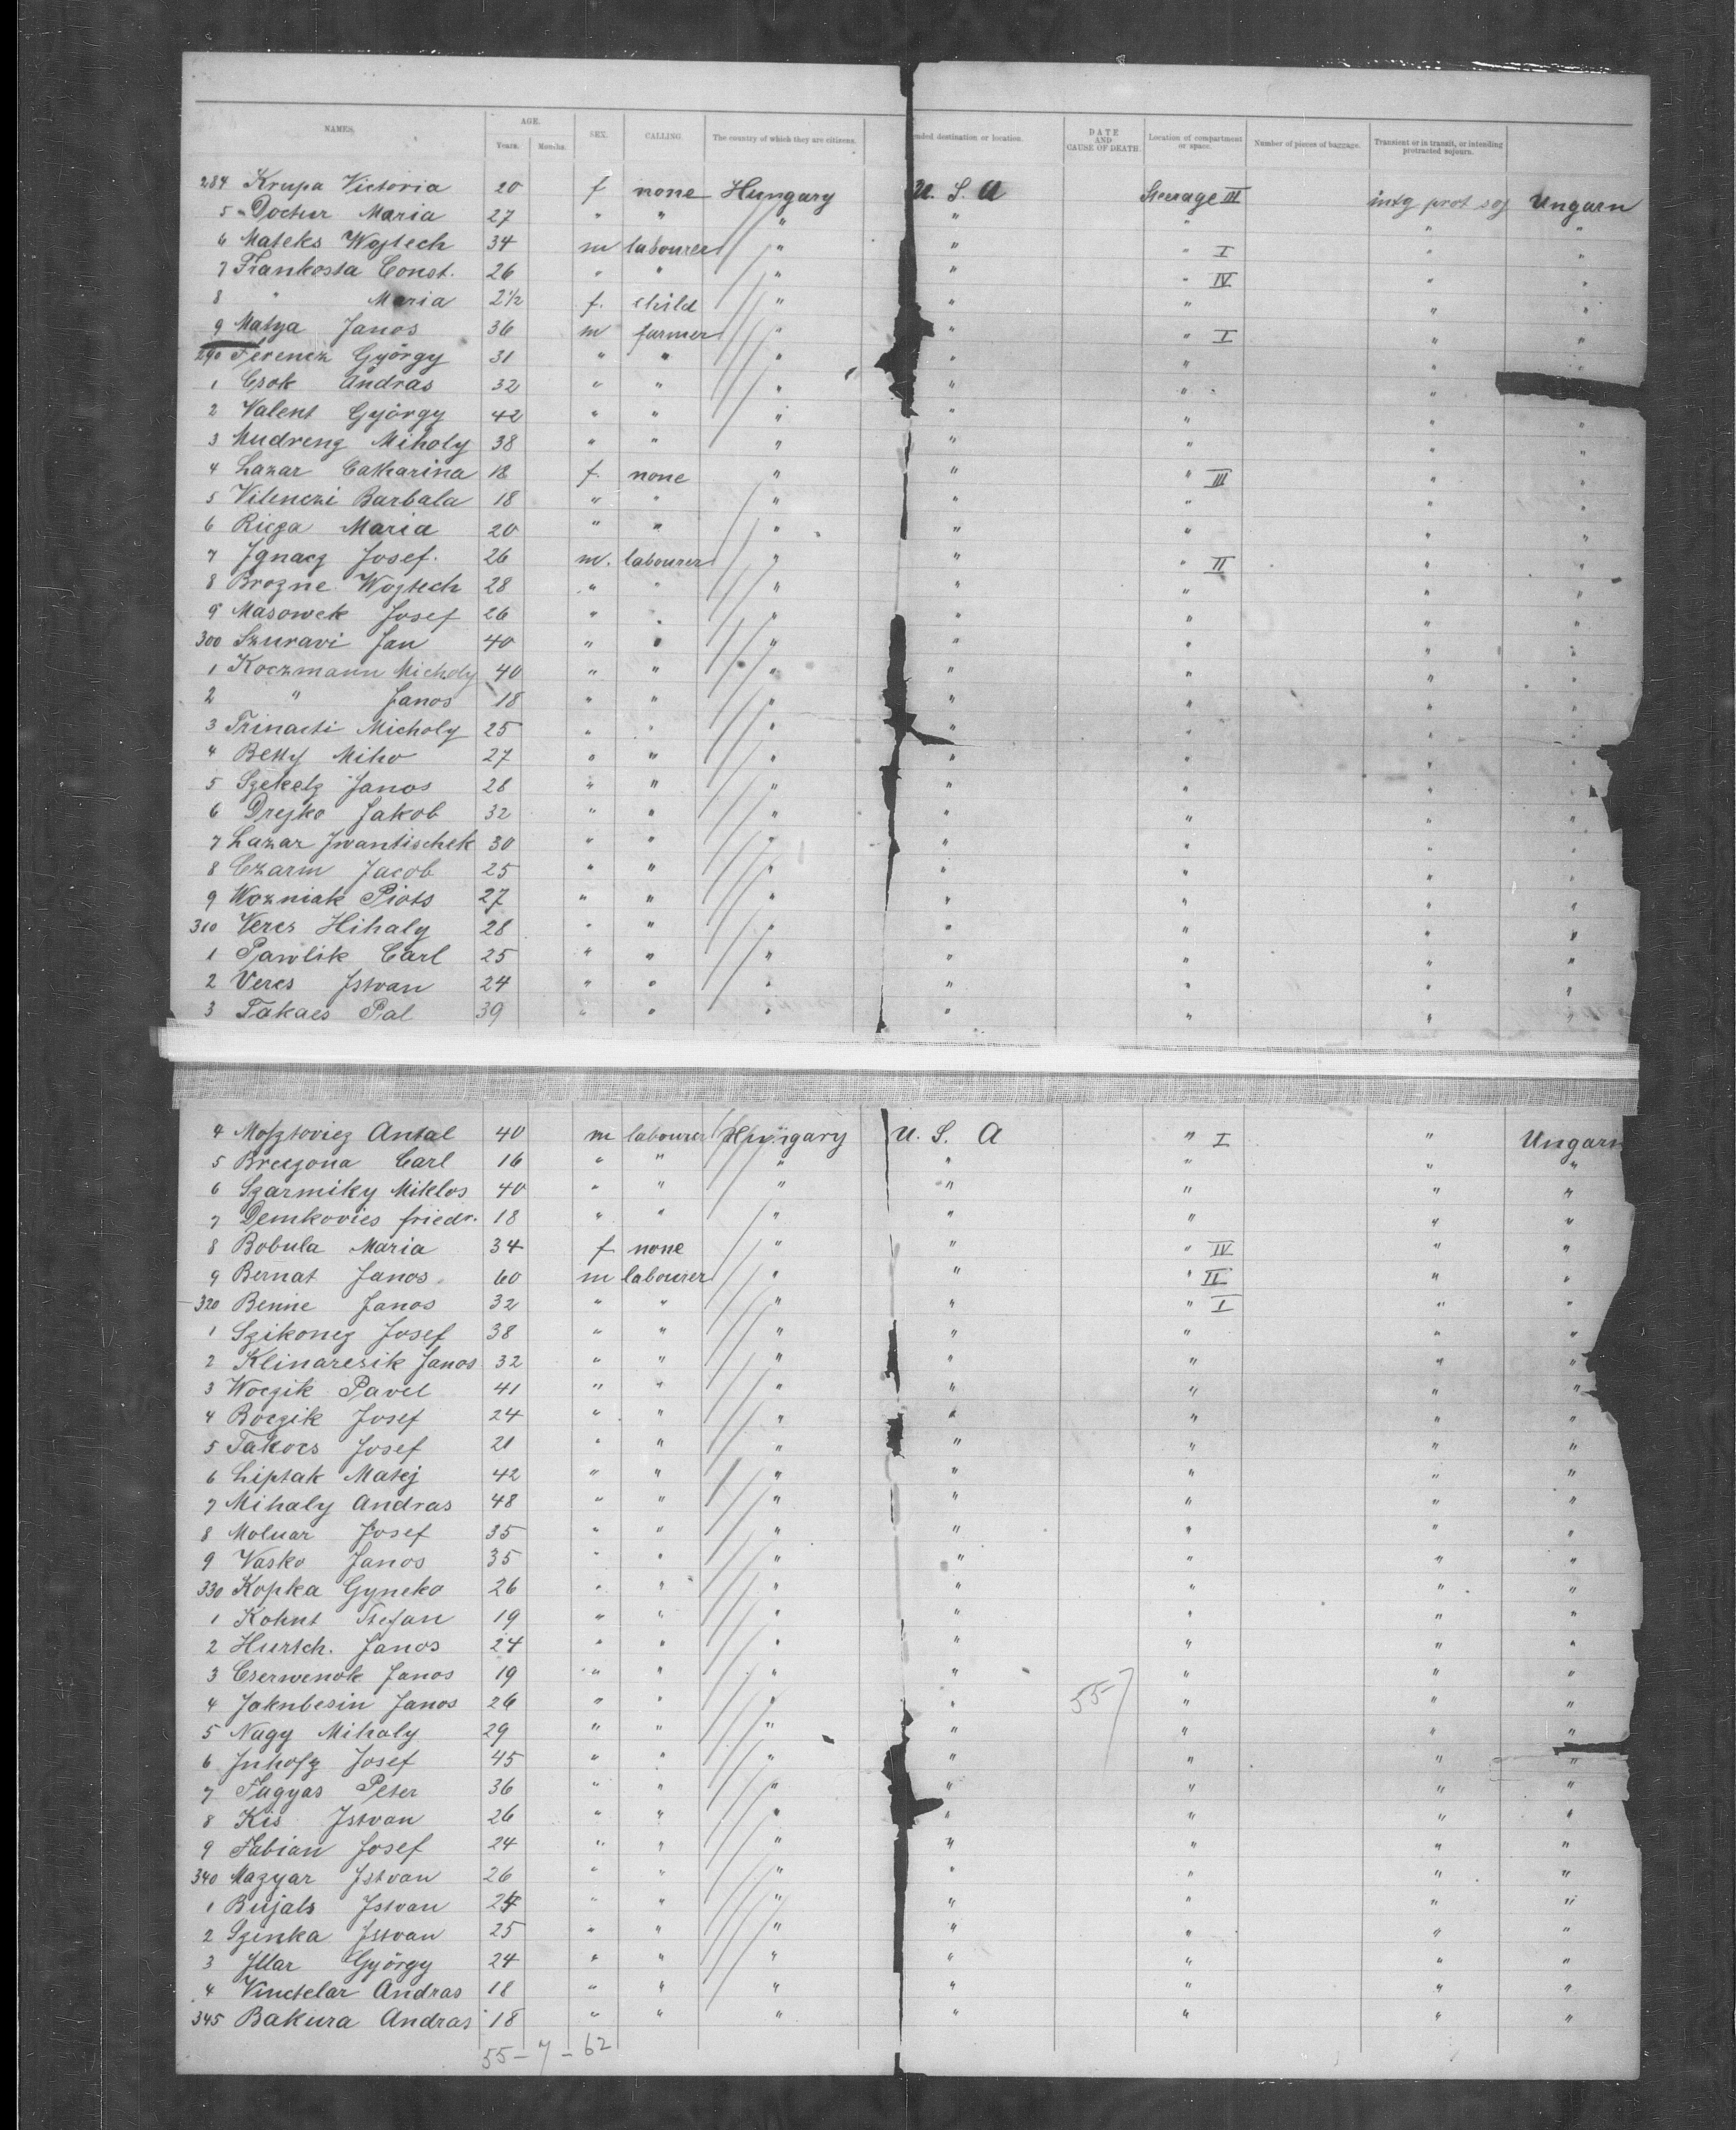 NAMES. AGE. Years. Months. SEX. CALLING. The country of which they are citizens. ended destination or location. DATE AND CAUSE OF DEATH. Location of compartment or space. Number of pieces of baggage. Transient or in transit, or intending protracted sojourn.
284 Krupa Victoria 20 f none Hungary U. S. A Steerage III intg prot soj Ungarn
5 Doctur Maria 27 " " " " " " "
6 Mateks Wojtech 34 m labourer " " " I " "
7 Frankosta Const. 26 " " " " " IV " "
8 " Maria 2½ f. child " " " " "
9 Matya Janos 36 m farmer " " " I " "
290 Ferencz György 31 " " " " " " "
1 Csok Andras 32 " " " " " " "
2 Valent György 42 " " " " " " "
3 Mudreng Miholy 38 " " " " " " "
4 Lazar Catharina 18 f. none " " " III " "
5 Vilenczi Barbala 18 " " " " " " "
6 Riega Maria 20 " " " " " " "
7 Ignacz Josef. 26 m. labourer " " " II " "
8 Brozne Wojtech 28 " " " " " " "
9 Masowek Josef 26 " " " " " " "
300 Szuravi Jan 40 " " " " " " "
1 Koczmann Micholy 40 " " " " " " "
2 " Janos 18 " " " " " " "
3 Trinacti Micholy 25 " " " " " " "
4 Betty Miho 27 " " " " " " "
5 Szekelz Janos 28 " " " " " " "
6 Drejko Jakob 32 " " " " " " "
7 Lazar Jwantischek 30 " " " " " " "
8 Czarm Jacob 25 " " " " " " "
9 Wozniak Piots 27 " " " " " " "
310 Veres Hihaly 28 " " " " " " "
1 Pawlik Carl 25 " " " " " " "
2 Veres Jstvan 24 " " " " " " "
3 Takacs Pal 39 " " " " " " "
4 Mosztovicz Antal 40 m labourer Hungary U. S. A " I " Ungarn
5 Breczona Carl 16 " " " " " " "
6 Szarmiky Miklos 40 " " " " " " "
7 Demkovics friedr. 18 " " " " " " "
8 Bobula Maria 34 f none " " " IV " "
9 Bernat Janos 60 m labourer " " " II " "
320 Benne Janos 32 " " " " " I " "
1 Szikoneg Josef 38 " " " " " " "
2 Klinaresik Janos 32 " " " " " " "
3 Woczik Pavel 41 " " " " " " "
4 Boczik Josef 24 " " " " " " "
5 Takocs Josef 21 " " " " " " "
6 Liptak Matej 42 " " " " " " "
7 Mihaly Andras 48 " " " " " " "
8 Moluar Josef 35 " " " " " " "
9 Vasko Janos 35 " " " " " " "
330 Kopka Gyneko 26 " " " " " " "
1 Kohut Stefan 19 " " " " " " "
2 Hurtch. Janos 24 " " " " " " "
3 Cserwenok Janos 19 " " " " " " "
4 Jakubesin Janos 26 " " " " " " "
5 Nagy Mihaly 29 " " " " " " "
6 Juhosz Josef 45 " " " " " " "
7 Fagyas Peter 36 " " " " " " "
8 Kis Jstvan 26 " " " " " " "
9 Fabian Josef 24 " " " " " " "
340 Magyar Jstvan 26 " " " " " " "
1 Bujals Jstvan 24 " " " " " " "
2 Szinka Jstvan 25 " " " " " " "
3 Illar György 24 " " " " " " "
4 Vinctelar Andras 18 " " " " " " "
345 Bakura Andras 18 " " " " " " "
55 – 7 – 62